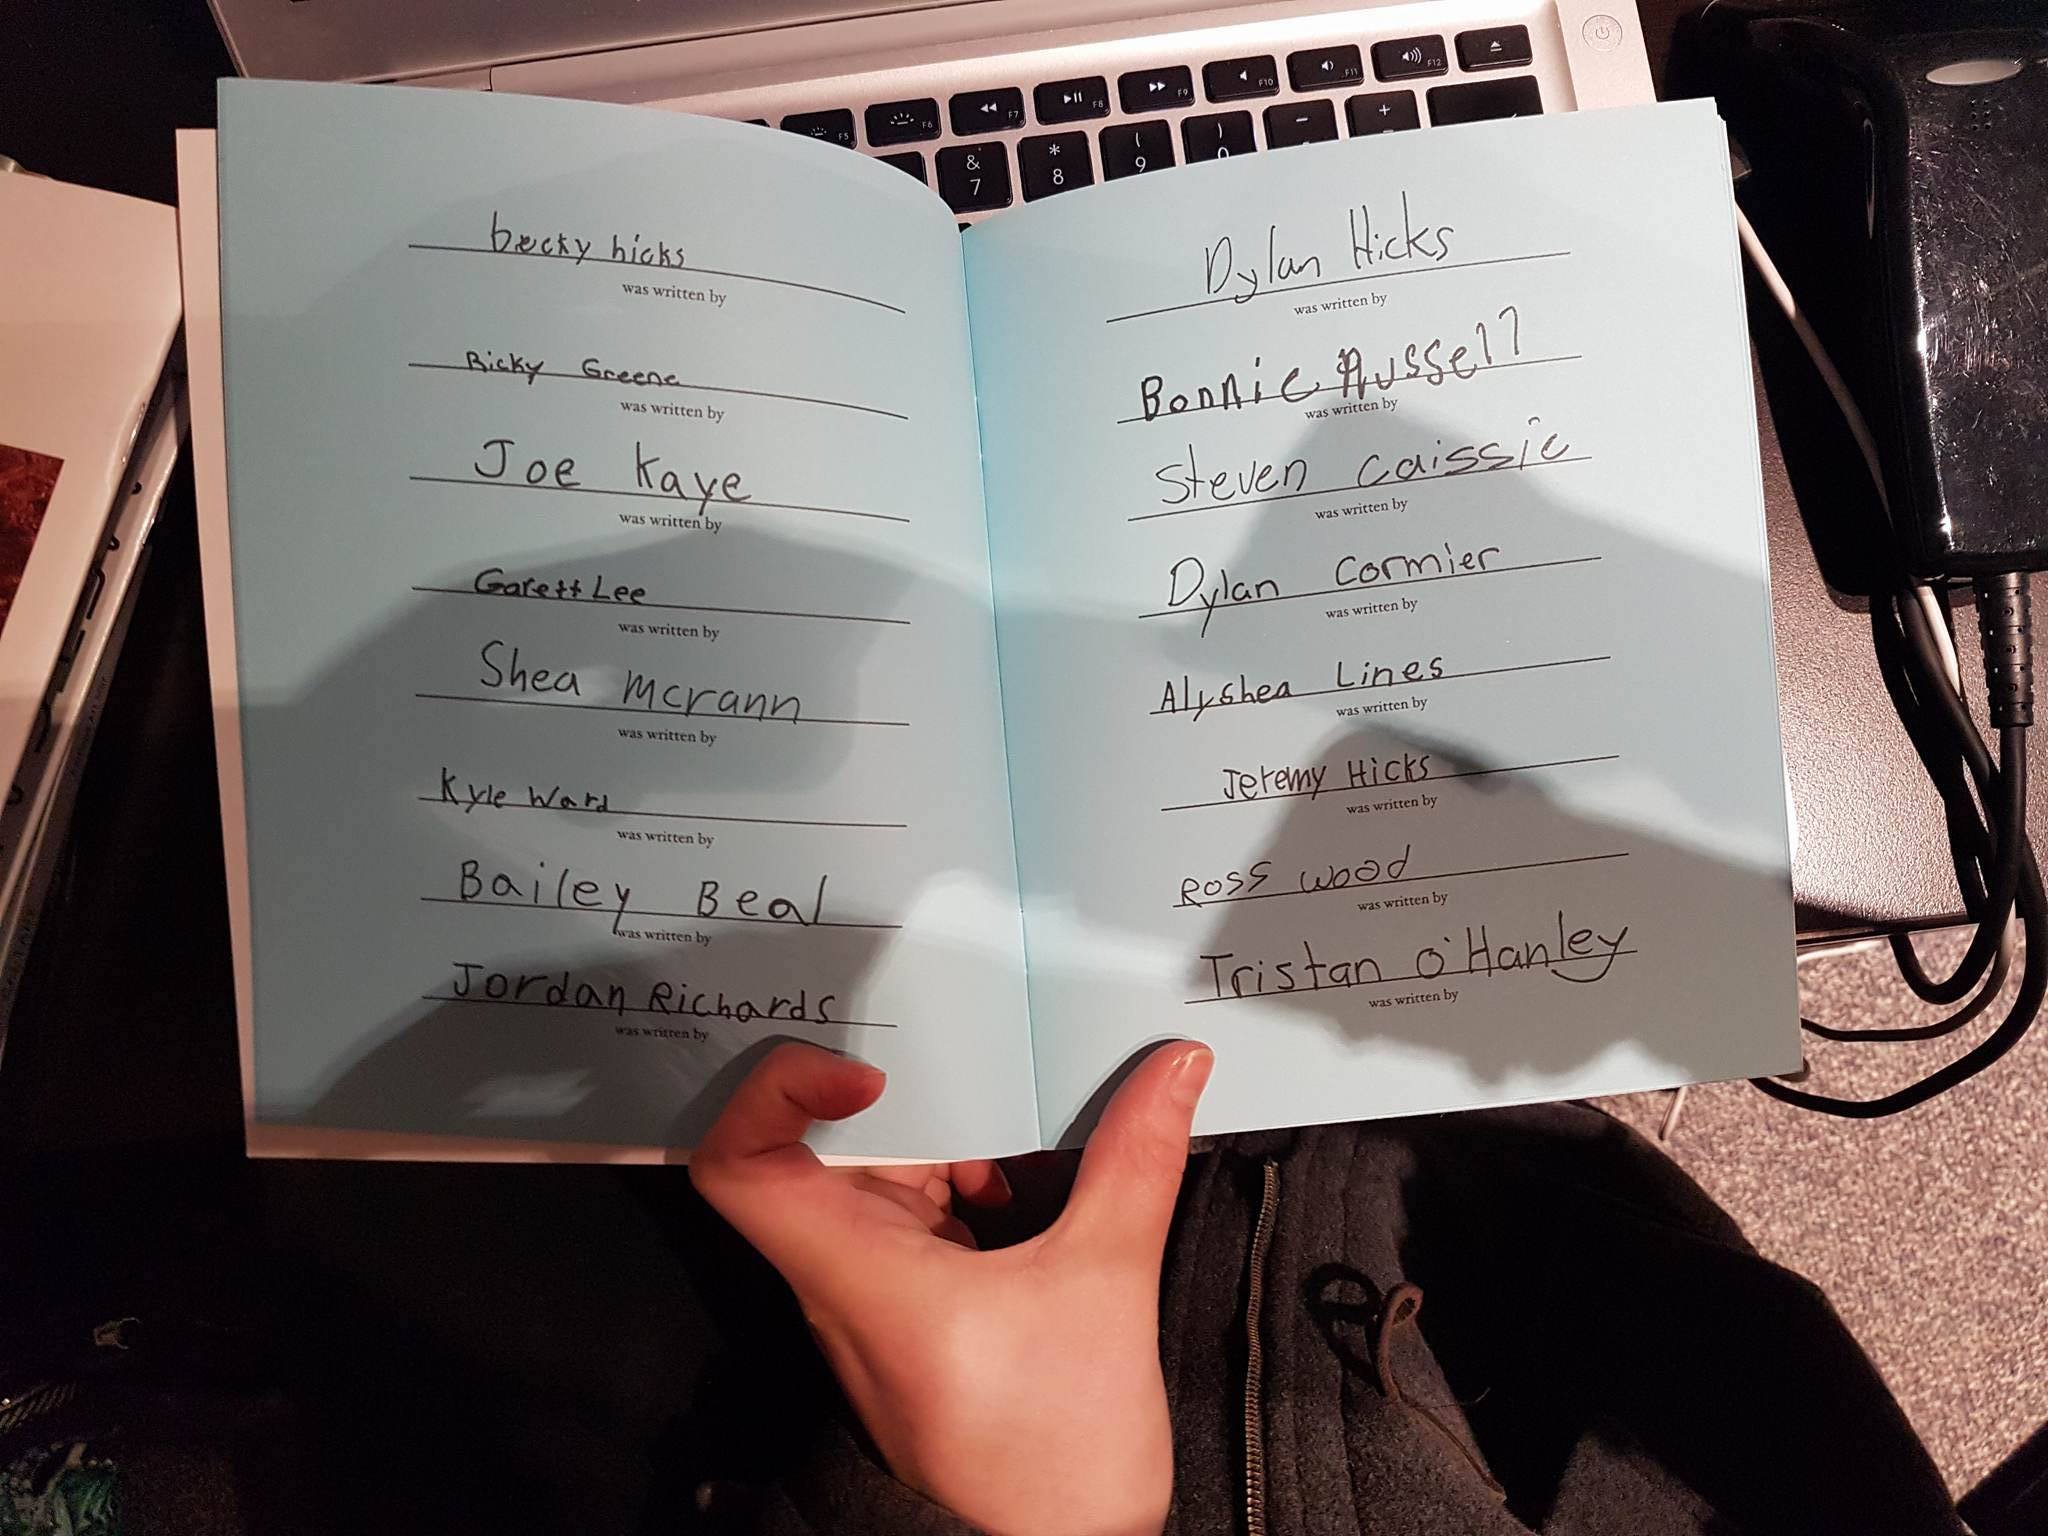 F5
F6
F7
F8
F9
F10
F11
F12
&
7
*
8
(
9
)
0
−
+
becky hicks
was written by
Ricky Greene
was written by
Joe Kaye
was written by
Garett Lee
was written by
Shea mcrann
was written by
Kyle Ward
was written by
Bailey Beal
was written by
Jordan Richards
was written by
Dylan Hicks
was written by
Bonnie Russell
was written by
Steven Caissie
was written by
Dylan Cormier
was written by
Alyshea Lines
was written by
Jeremy Hicks
was written by
Ross Wood
was written by
Tristan O'Hanley
was written by